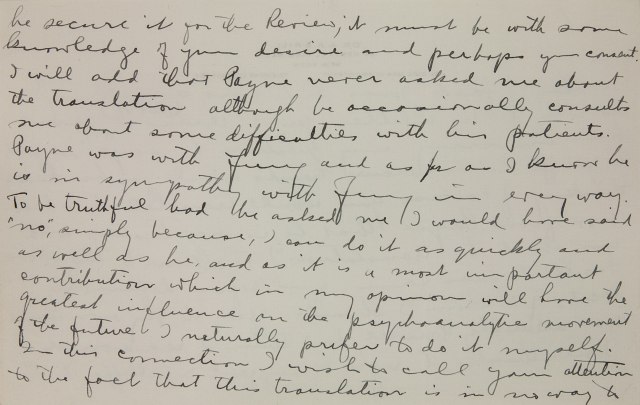 he secure it for the Review, it must be with some
knowledge of your desire and perhaps your consent.
I will add that Payne never asked me about
the translation although he occasionally consults
me about some difficulties with his patients.
Payne was with Jung and as far as I know he
is in sympathy with Jung in every way.
To be truthful had he asked me, I would have said
"no", simply because, I can do it as quickly and
as well as he, and as it is a most important
contribution which in my opinion will have the
greatest influence on the psychoanalytic movement
of the future I naturally prefer to do it myself.
In this connection I wish to call your attention
to the fact that this translation is in no way to